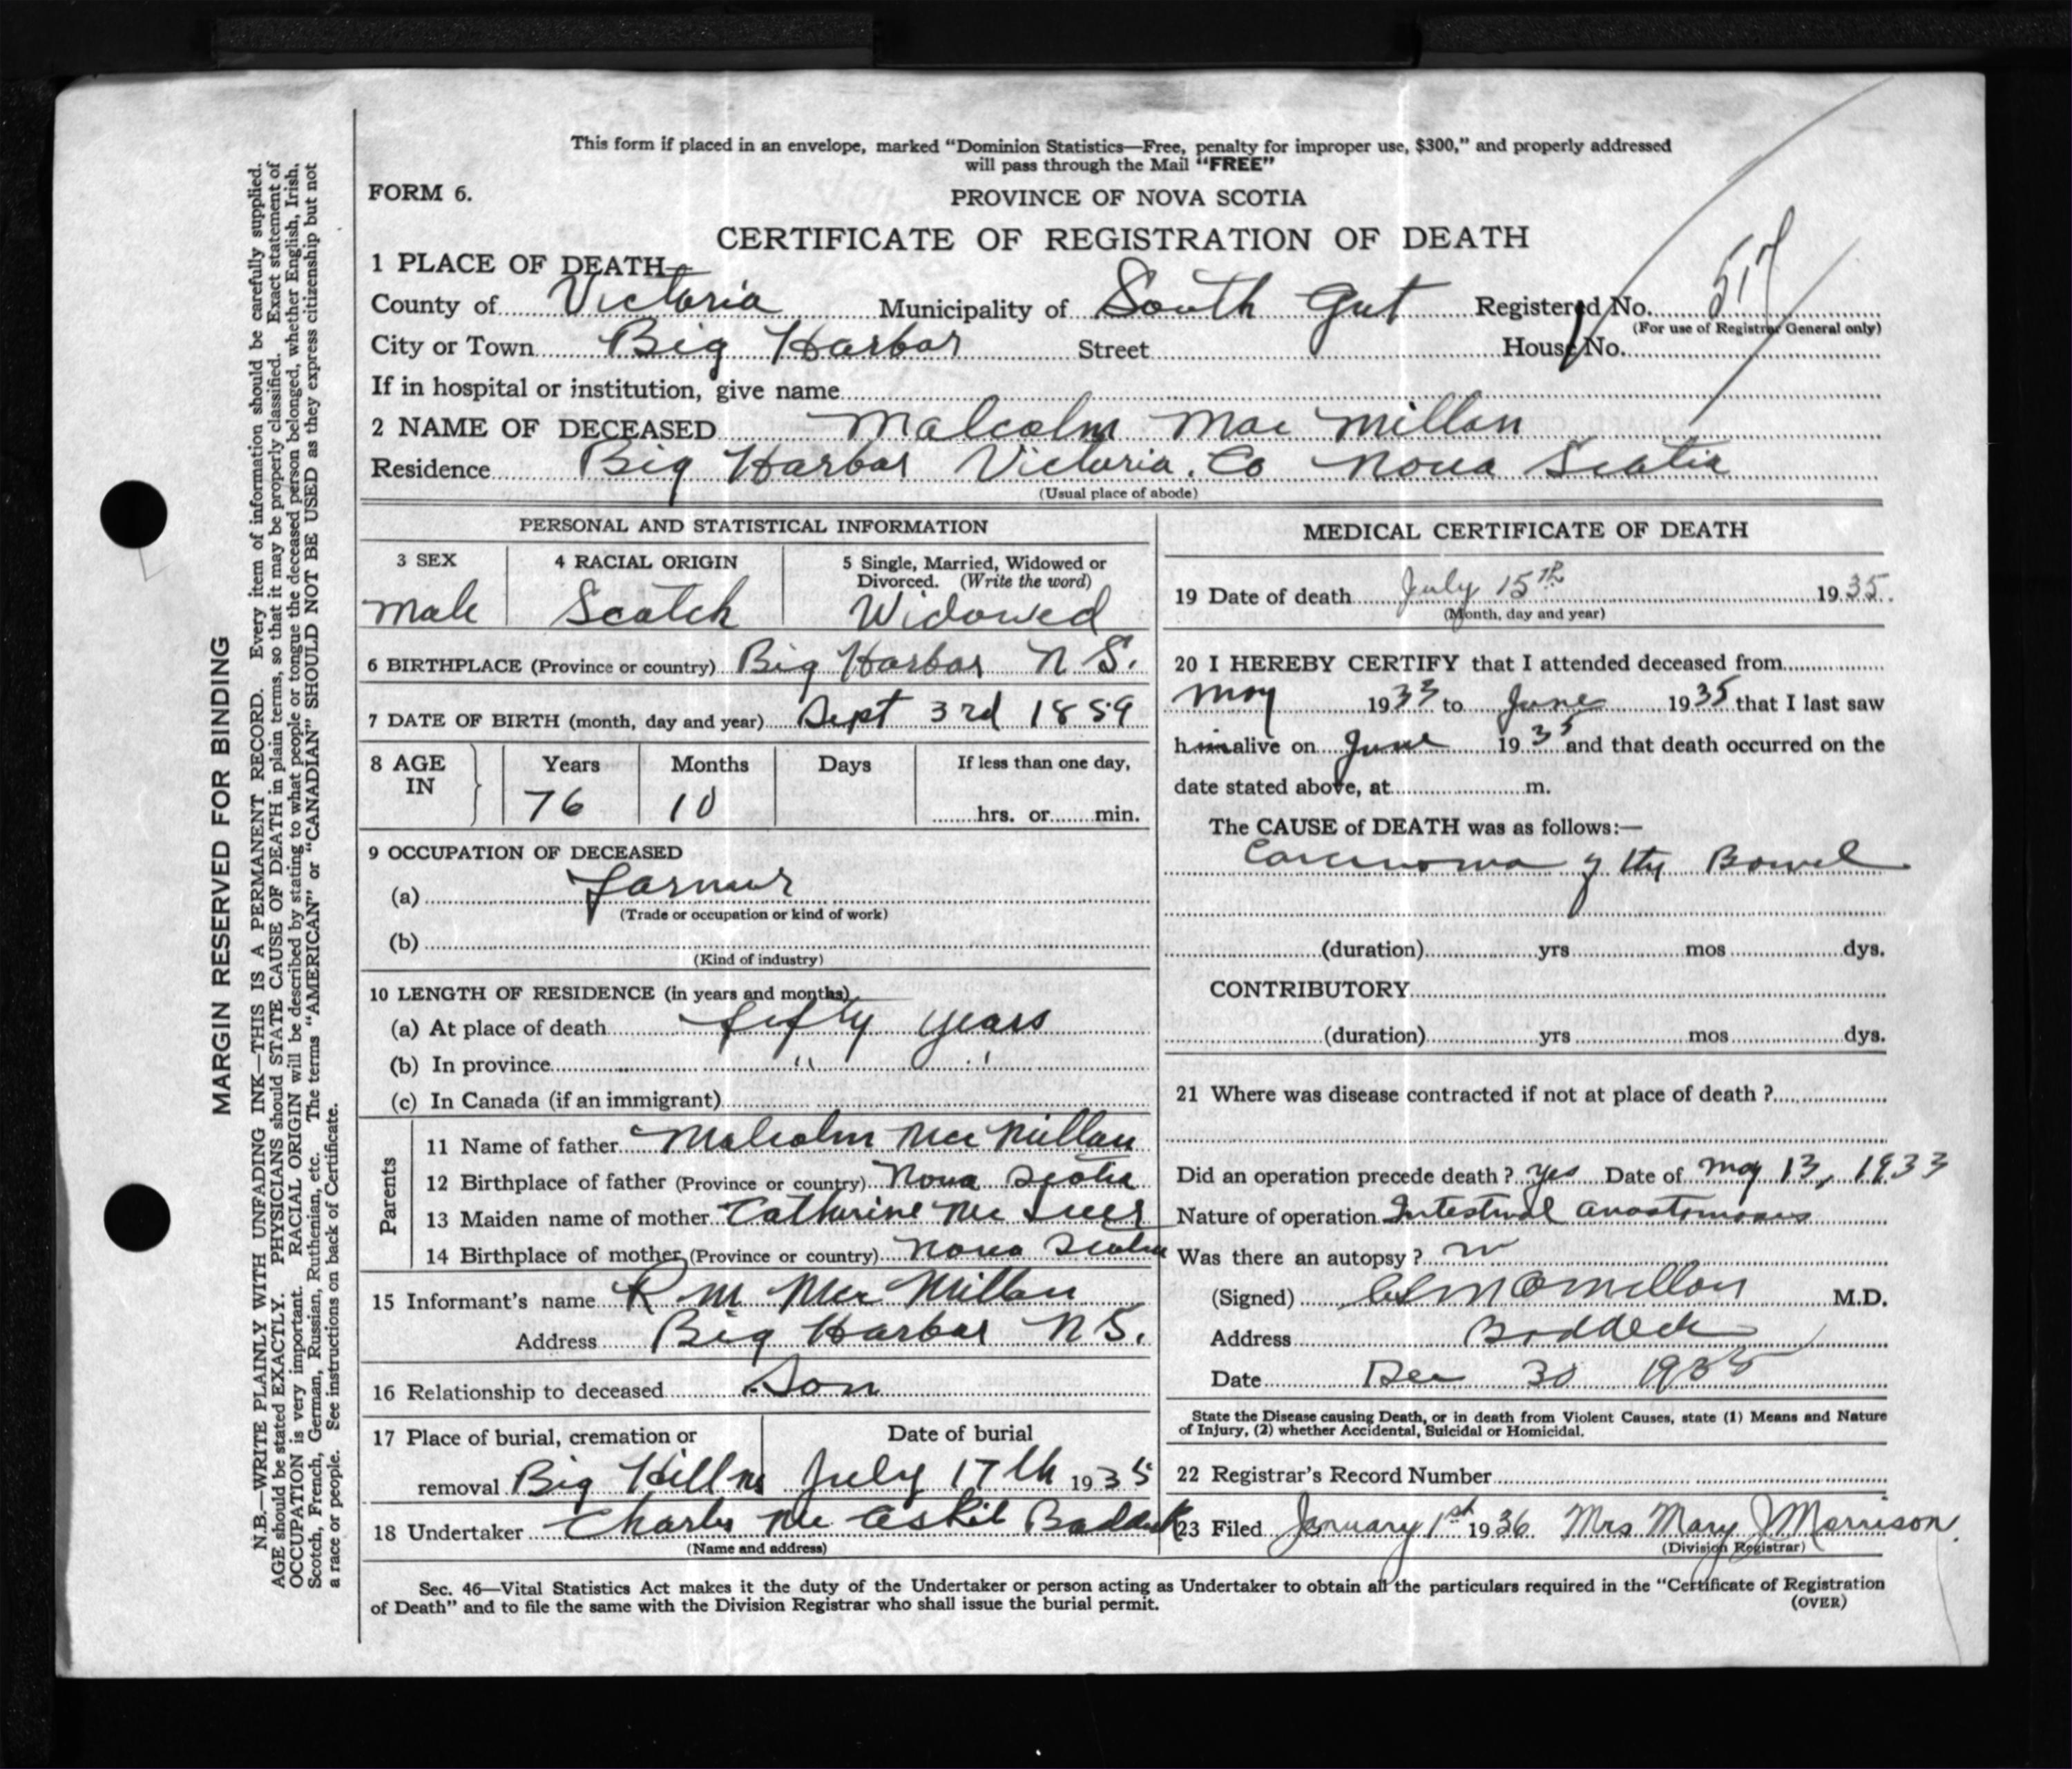 This form if placed in an envelope, marked “Dominion Statistics—Free, penalty for improper use, $300,” and properly addressed
will pass through the Mail “FREE”
FORM 6.
PROVINCE OF NOVA SCOTIA
CERTIFICATE OF REGISTRATION OF DEATH
1 PLACE OF DEATH—
County of Victoria Municipality of South Gut Registered No. 517
(For use of Registrar General only)
City or Town Big Harbor Street House No.
If in hospital or institution, give name
2 NAME OF DECEASED Malcolm Mac Millan
Residence Big Harbor Victoria. Co Nova Scotia
(Usual place of abode)
PERSONAL AND STATISTICAL INFORMATION
3 SEX 4 RACIAL ORIGIN 5 Single, Married, Widowed or
Divorced. (Write the word)
Male Scotch Widowed
6 BIRTHPLACE (Province or country) Big Harbor N S.
7 DATE OF BIRTH (month, day and year) Sept 3rd 1859
8 AGE IN Years Months Days If less than one day,
76 10 hrs. or min.
9 OCCUPATION OF DECEASED
(a) farmer
(Trade or occupation or kind of work)
(b)
(Kind of industry)
10 LENGTH OF RESIDENCE (in years and months)
(a) At place of death fifty years
(b) In province " "
(c) In Canada (if an immigrant)
Parents
11 Name of father Malcolm Mc Millan
12 Birthplace of father (Province or country) Nova Scotia
13 Maiden name of mother Catherine Mc
14 Birthplace of mother (Province or country) Nova Scotia
15 Informant's name R M Mac Millan
Address Big Harbor N S.
16 Relationship to deceased Son
17 Place of burial, cremation or Date of burial
removal Big Hill NS July 17th 1935
18 Undertaker Charles Mc Askil Baddeck
(Name and address)
MEDICAL CERTIFICATE OF DEATH
19 Date of death July 15th 1935.
(Month, day and year)
20 I HEREBY CERTIFY that I attended deceased from
May 1933 to June 1935 that I last saw
him alive on June 1935 and that death occurred on the
date stated above, at m.
The CAUSE of DEATH was as follows:—
Carcinoma of the Bowel
(duration) yrs mos dys.
CONTRIBUTORY
(duration) yrs mos dys.
21 Where was disease contracted if not at place of death ?
Did an operation precede death ? Yes Date of May 13, 1933
Nature of operation Intestinal anastomosis
Was there an autopsy ? no
(Signed) McMillan M.D.
Address Baddeck
Date Dec 30 1935
State the Disease causing Death, or in death from Violent Causes, state (1) Means and Nature
of Injury, (2) whether Accidental, Suicidal or Homicidal.
22 Registrar's Record Number
23 Filed January 1st 1936 Mrs Mary J Morrison.
(Division Registrar)
Sec. 46—Vital Statistics Act makes it the duty of the Undertaker or person acting as Undertaker to obtain all the particulars required in the “Certificate of Registration
of Death” and to file the same with the Division Registrar who shall issue the burial permit.
(OVER)
MARGIN RESERVED FOR BINDING
N.B.—WRITE PLAINLY WITH UNFADING INK—THIS IS A PERMANENT RECORD. Every item of information should be carefully supplied.
AGE should be stated EXACTLY. PHYSICIANS should STATE CAUSE OF DEATH in plain terms, so that it may be properly classified. Exact statement of
OCCUPATION is very important. RACIAL ORIGIN will be described by stating to what people or tongue the deceased person belonged, whether English, Irish,
Scotch, French, German, Russian, Ruthenian, etc. The terms “AMERICAN” or “CANADIAN” SHOULD NOT BE USED as they express citizenship but not
a race or people. See instructions on back of Certificate.